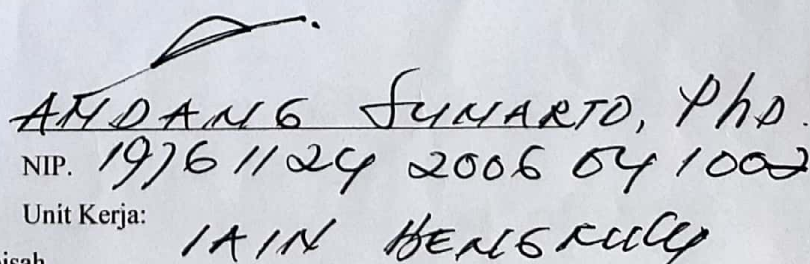 ANDANG SUNARTO, PhD.
NIP. 19761124 2006 04 1002
Unit Kerja:
IAIN BENGKULU